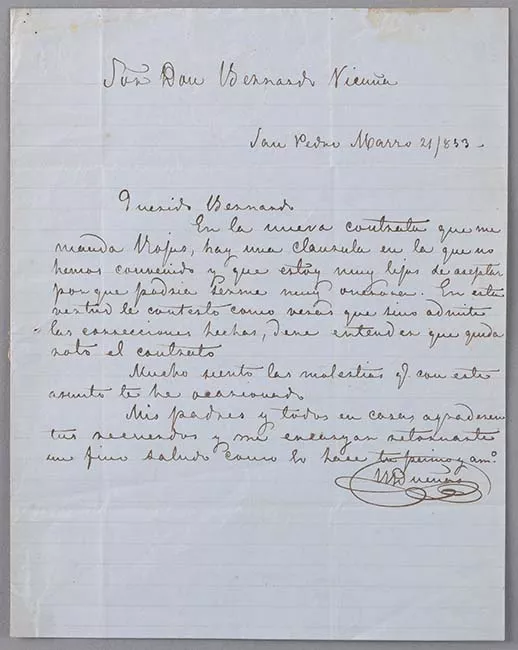 Sor Don Bernardo Vicuña
San Pedro Marzo 21/853
Querido Bernardo
En la nueva contrata que me
manda Rojas, hay una clausula en la que no
hemos convenido y que estoy muy lejos de aceptar
por que podria serme muy onerosa. En esta
vertud le contesto como verás que sino admite
las correcciones hechas, deve entender que queda
roto el contrato
Mucho siento las molestias q. con este
asunto te he ocasionado
Mis padres y todos en casa agradecen
tus recuerdos y me encargan retornarte
un fino saludo como lo hace tu primo y amo.